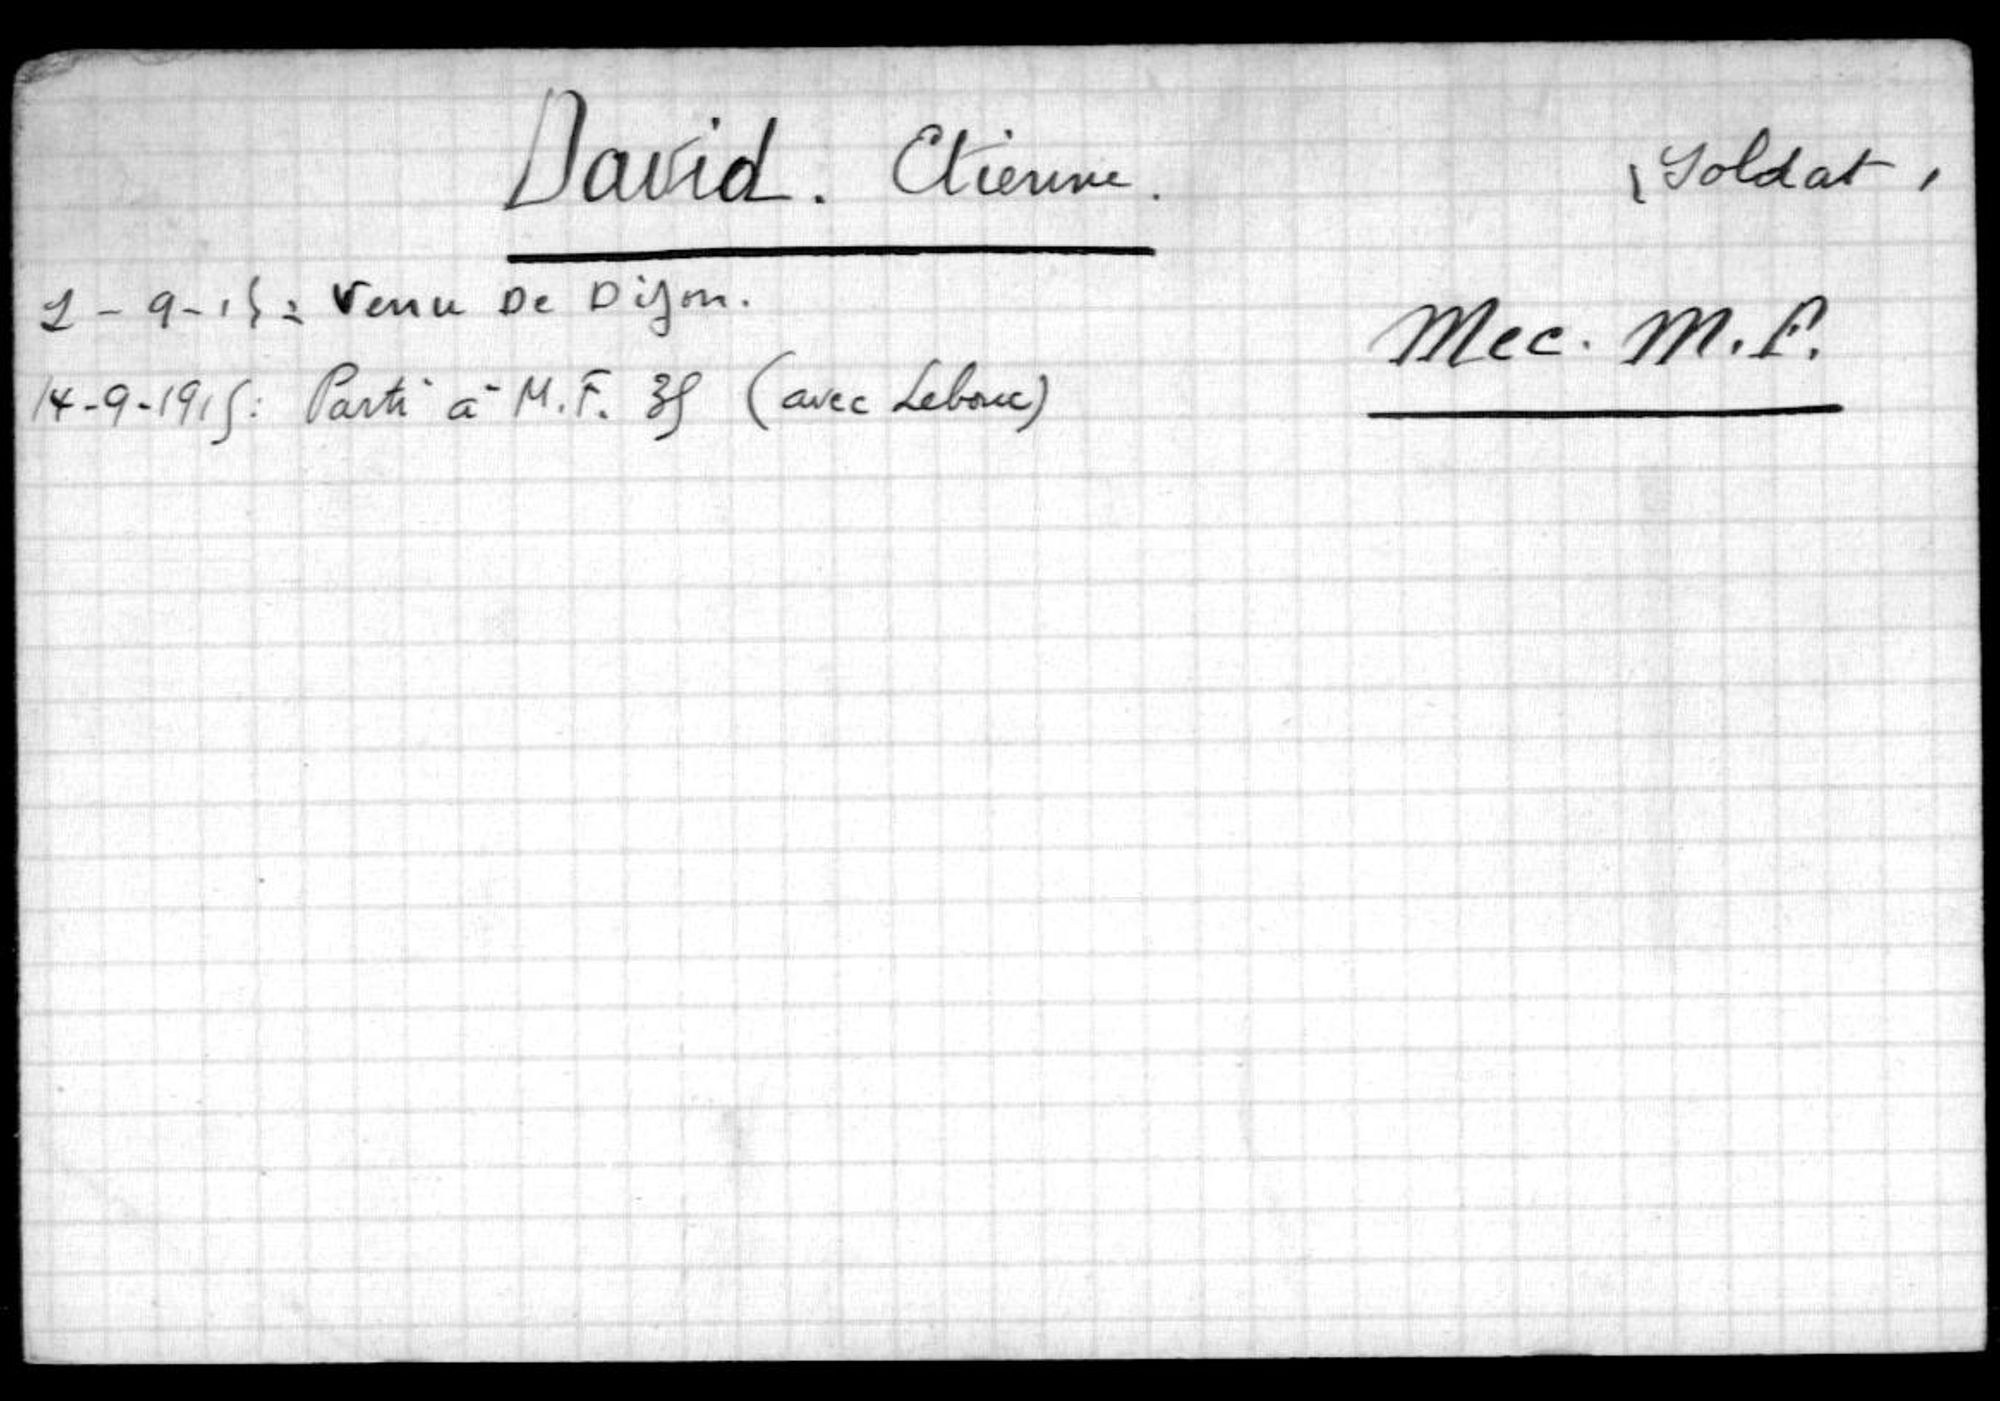 David. Etienne.
(Soldat)
2-9-15: Venu De Dijon.
Mec. M.F.
14-9-1915: Parti à M.F. 35 (avec Lebouc)